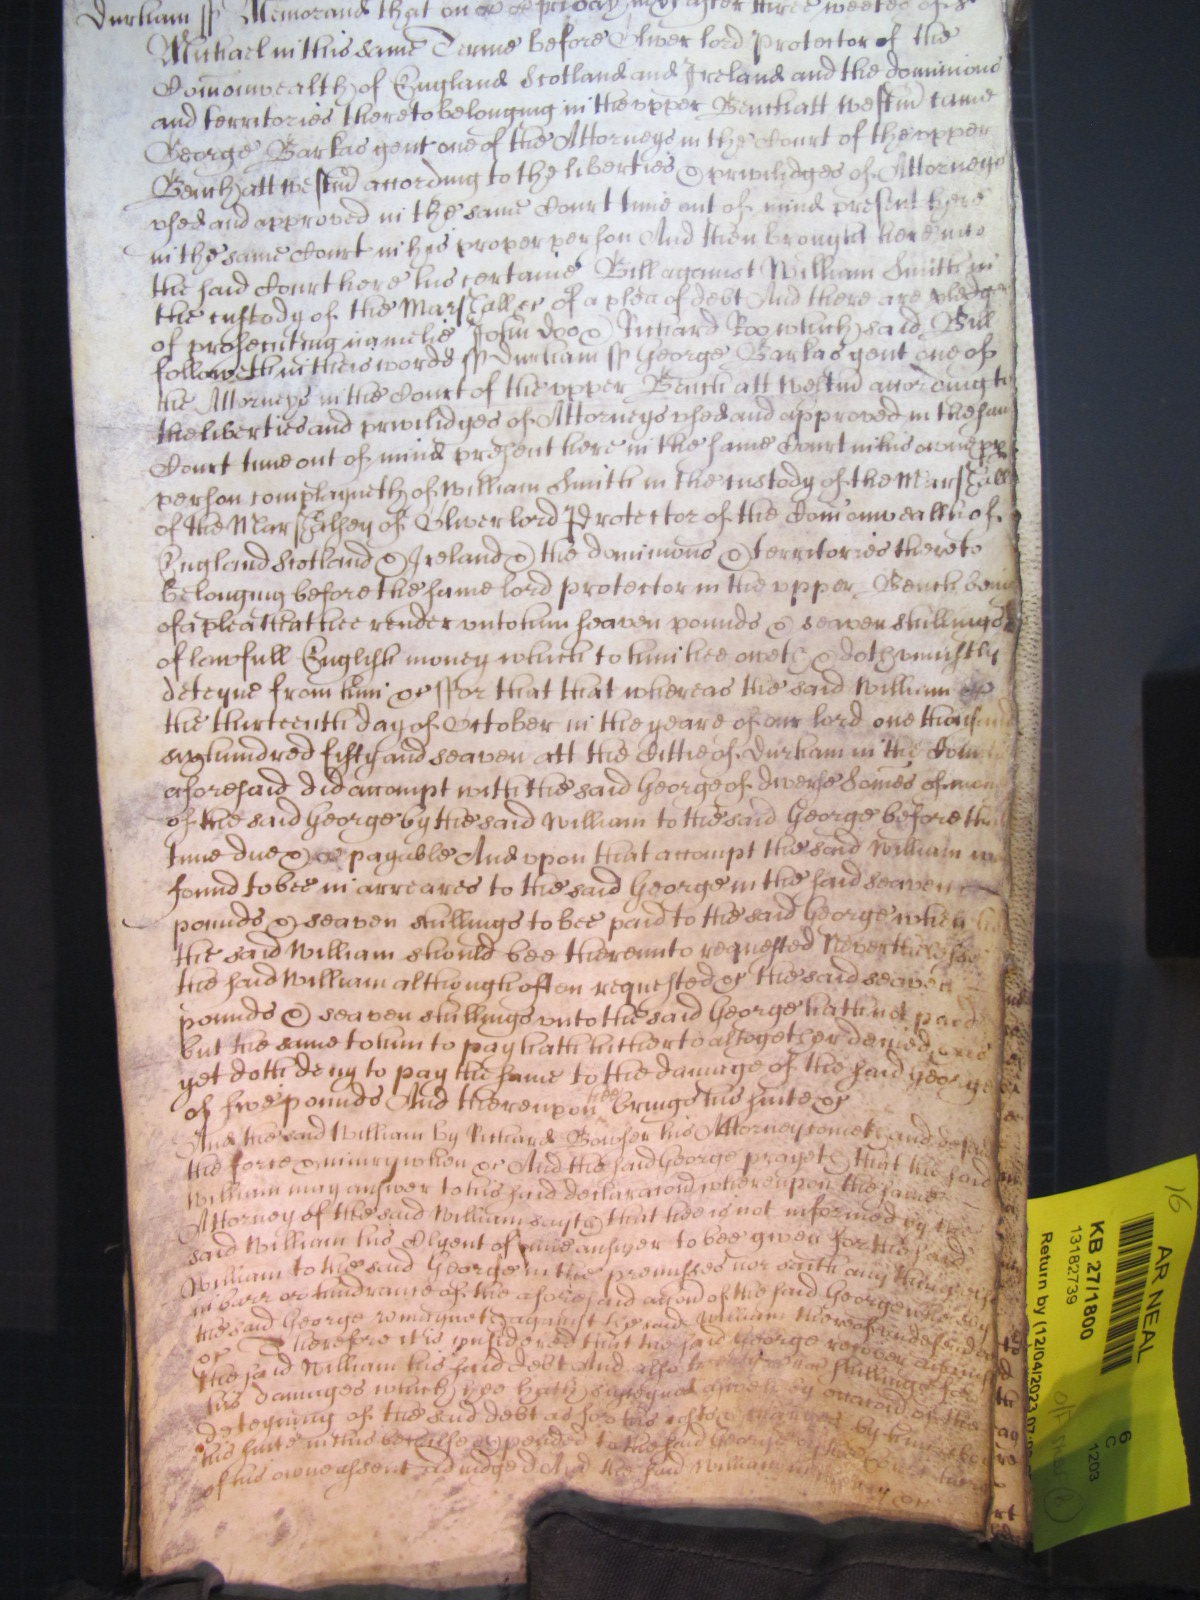 Durham ss Memorand that on friday next after three weekes of St
Michael in this same Terme before Oliver lord Protector of the
Comonwealth of England Scotland and Ireland and the dominions
and territories thereto belonging in the upper Bench att Westm came
George Barkas gent one of the Attorneys in the Court of the upper
Bench att Westm according to the liberties & priviledges of Attorneys
used and approved in the same Court time out of mind present here
in the same Court in his proper person And then brought here into
the said Court here his certaine Bill against William Smith in
the custody of the Marshall &c of a plea of debt And there are pledges
of prosecuting namelie John Doo & Richard Roo which said Bill
followeth in theis words ss Durham ss George Barkas gent one of
the Attorneys in the Court of the upper Bench att Westm according to
the liberties and priviledges of Attorneys used and approved in the same
Court time out of mind present here in the same Court in his owne pp
person complayneth of William Smith in the custody of the Marshall
of the Marshalsey of Oliver lord Protector of the Comonwealth of
England Scotland & Ireland & the dominions & territories thereto
belonging before the same lord protector in the upper Bench being
of a plea that hee render unto him seaven pounds & seaven shillings
of lawfull English money which to him hee oweth & doth uniustly
deteyne from him &c ffor that that whereas the said William
the thirteenth day of October in the yeare of our lord one thousand
six hundred fifty and seaven att the Cittie of Durham in the County
aforesaid did accompt with the said George of diverse somes of money
of the said George by the said William to the said George before that
time due & payable And upon that accompt the said William was
found to bee in arreares to the said George in the said seaven
pounds & seaven shillings to bee paid to the said George when
the said William should bee thereunto requested Neverthelesse
the said William although often requested &c the said seaven
pounds & seaven shillings unto the said George hath not paid
but the same to him to pay hath hitherto altogether denied and
yet doth deny to pay the same to the damage of the said George
of five pounds And thereupon hee brings his suite &c
And the said William by Richard Bowser his Attorney cometh and defends
the force & iniury when &c And the said George prayeth that the said
William may answer to his said declaracon whereupon the same
Attorney of the said William sayth that hee is not informed by the
said William his Clyent of anie answer to bee given for the said
William to the said George in the premisses nor saith any thing else
in barr or hindrance of the aforesaid accon of the said George whereby
the said George remayneth against the said William thereof undefended
&c Therefore it is considered that the said George recover against
the said William his said debt And also shillings for
his damages which hee hath susteyned by occacon of the
deteyning of the said debt as for his costs & charges by him about
his suite in this behalfe expended to the said George by the Court here
of his owne assent adiudged And the said William in mercy &c
16
AR NEAL
KB 27/1800
13182739
6
C
1203
Return by (12/04/2023